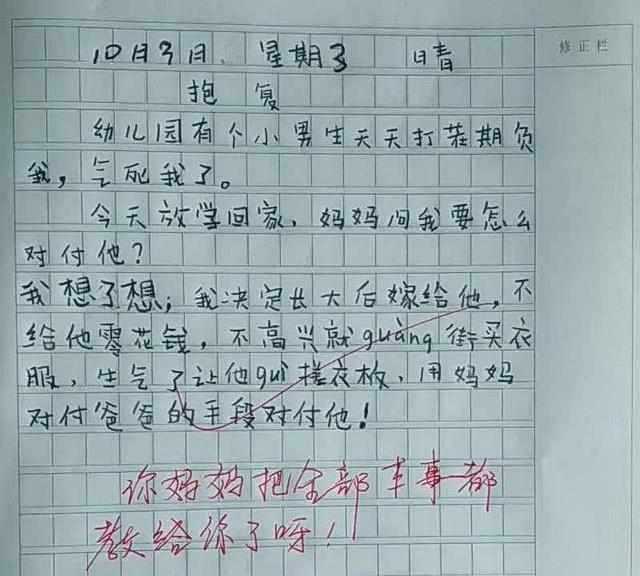 10月3日、星期3 晴
修正栏
抱复
幼儿园有个小男生天天打茬期负
我,气死我了。
今天放学回家、妈妈问我要怎么
对付他?
我想了想,我决定长大后嫁给他,不
给他零花钱,不高兴就guàng街买衣
服、生气了让他guì搓衣板、用妈妈
对付爸爸的手段对付他!
你妈妈把全部本事都
教给你了呀!